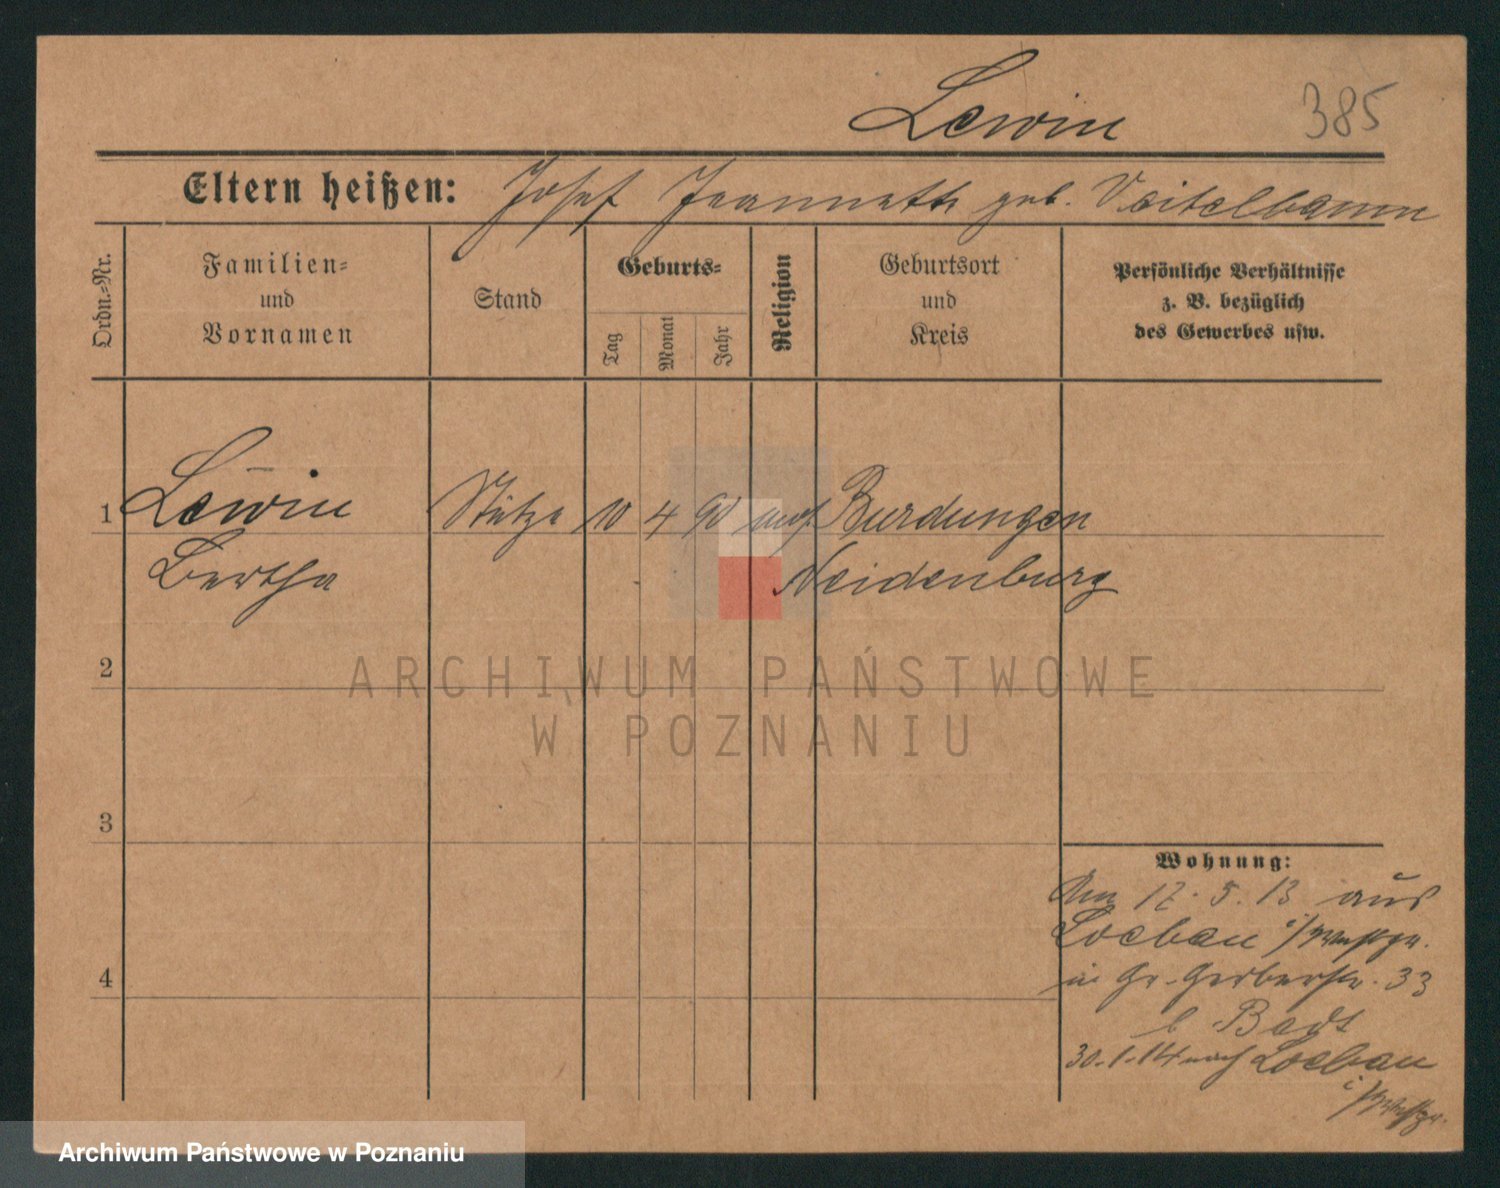 Lewin 385
Eltern heißen: Josef Jeannette geb. Veitelbaum
Ordn.=Nr.
Familien=
und
Vornamen
Stand
Geburts=
Tag
Monat
Jahr
Religion
Geburtsort
und
Kreis
Persönliche Verhältnisse
z. B. bezüglich
des Gewerbes usw.
1 Lewin Stütze 10 4 90 mos. Burdungen
Bertha Neidenburg
2
3
4
Wohnung:
Am 17.5.13 aus
Loebau i/Westpr.
in Gr. Gerberstr. 33
b. Badt
30.1.14 nach Loebau
i/Westpr.
ARCHIWUM PAŃSTWOWE
W POZNANIU
Archiwum Państwowe w Poznaniu